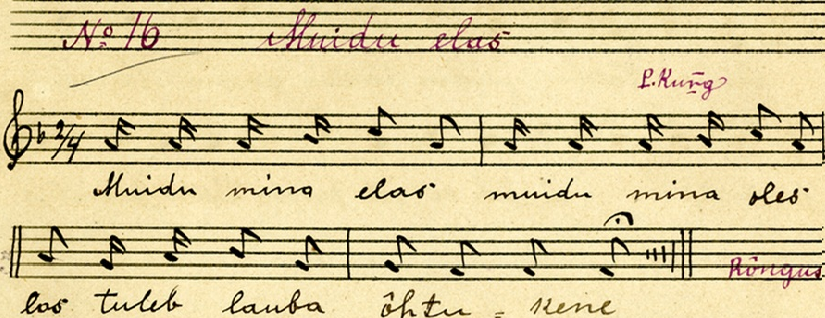 No 16 Muidu elas
L. Kurrg
2/4
Muidu mina elas muidu mina oles
las tuleb lauba õhtu - kene
Rõngus